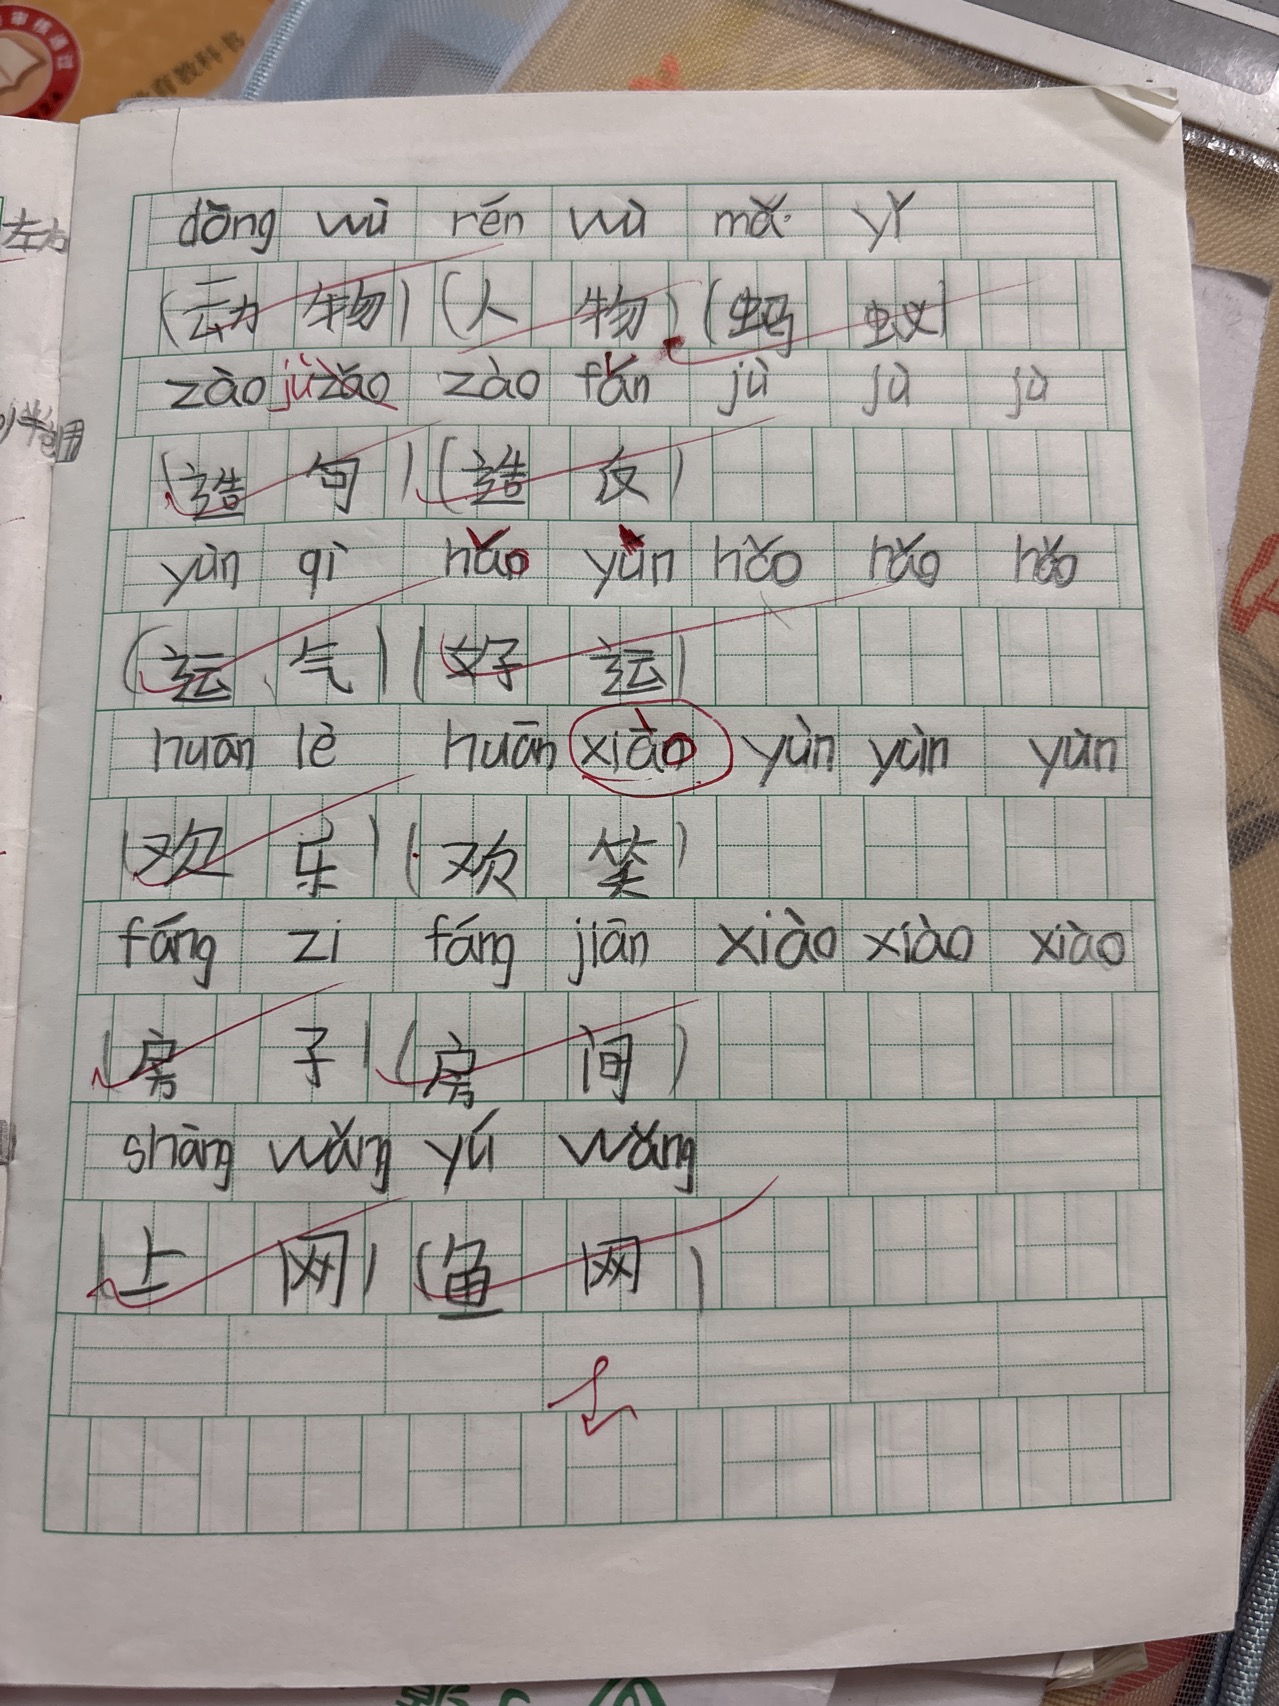 育教科书
左右
dōng wù rén wù mǎ yǐ
(动 物)(人 物)(蚂 蚁)
zào jù zào zào fǎn jù jù jù
(造 句)(造 反)
yùn qì hǎo yùn hǎo hǎo hǎo
(运 气)(好 运)
huān lè huān xiào yùn yùn yùn
(欢 乐)(欢 笑)
fáng zi fáng jiān xiào xiào xiào
(房 子)(房 间)
shàng wǎng yú wǎng
(上 网)(鱼 网)